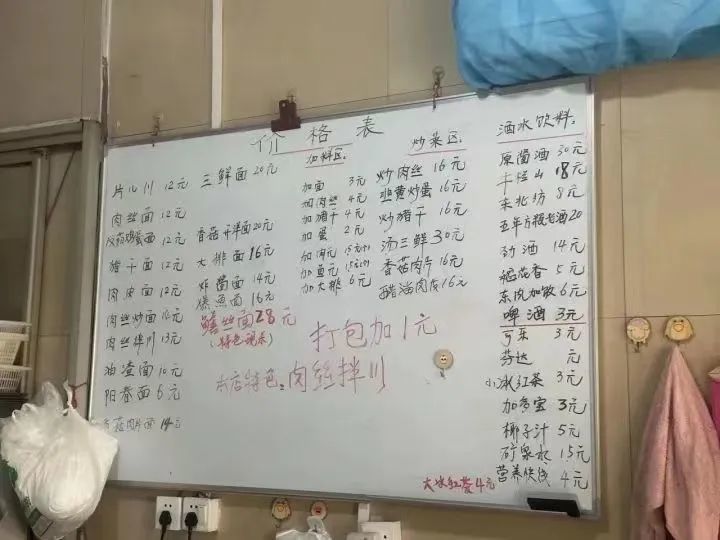 价格表
片儿川 12元
肉丝面 12元
猪干面 12元
肉皮面 12元
肉丝炒面
肉丝拌川 13元
油渣面 10元
阳春面 6元
菇肉片面 14元
三鲜面 20元
香菇 开洋面 20元
大排面 16元
炸酱面 14元
爆鱼面 16元
鳝丝面 28元
加料区:
加面 3元
加肉丝 4元
加猪干 4元
加蛋 2元
加肉元
加鱼元
加大排 6元
炒菜区:
炒肉丝 16元
韭黄炒蛋 16元
炒猪干 16元
汤三鲜 30元
香菇肉片 16元
醋溜肉皮 16元
打包加1元
本店特色:肉丝拌川
酒水饮料:
30元
18元
8元
五年方瓶老酒 20
劲酒 14元
稻花香 5元
6元
啤酒 3元
可乐 3元
芬达 元
小冰红茶 3元
加多宝 3元
椰子汁 5元
矿泉水 1.5元
营养快线 4元
大冰红茶 4元